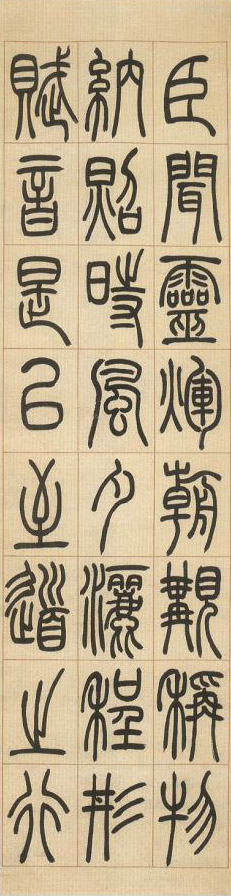 臣聞靈煇朝覯稱物
納照時風夕灑程形
賦音是以至道之行